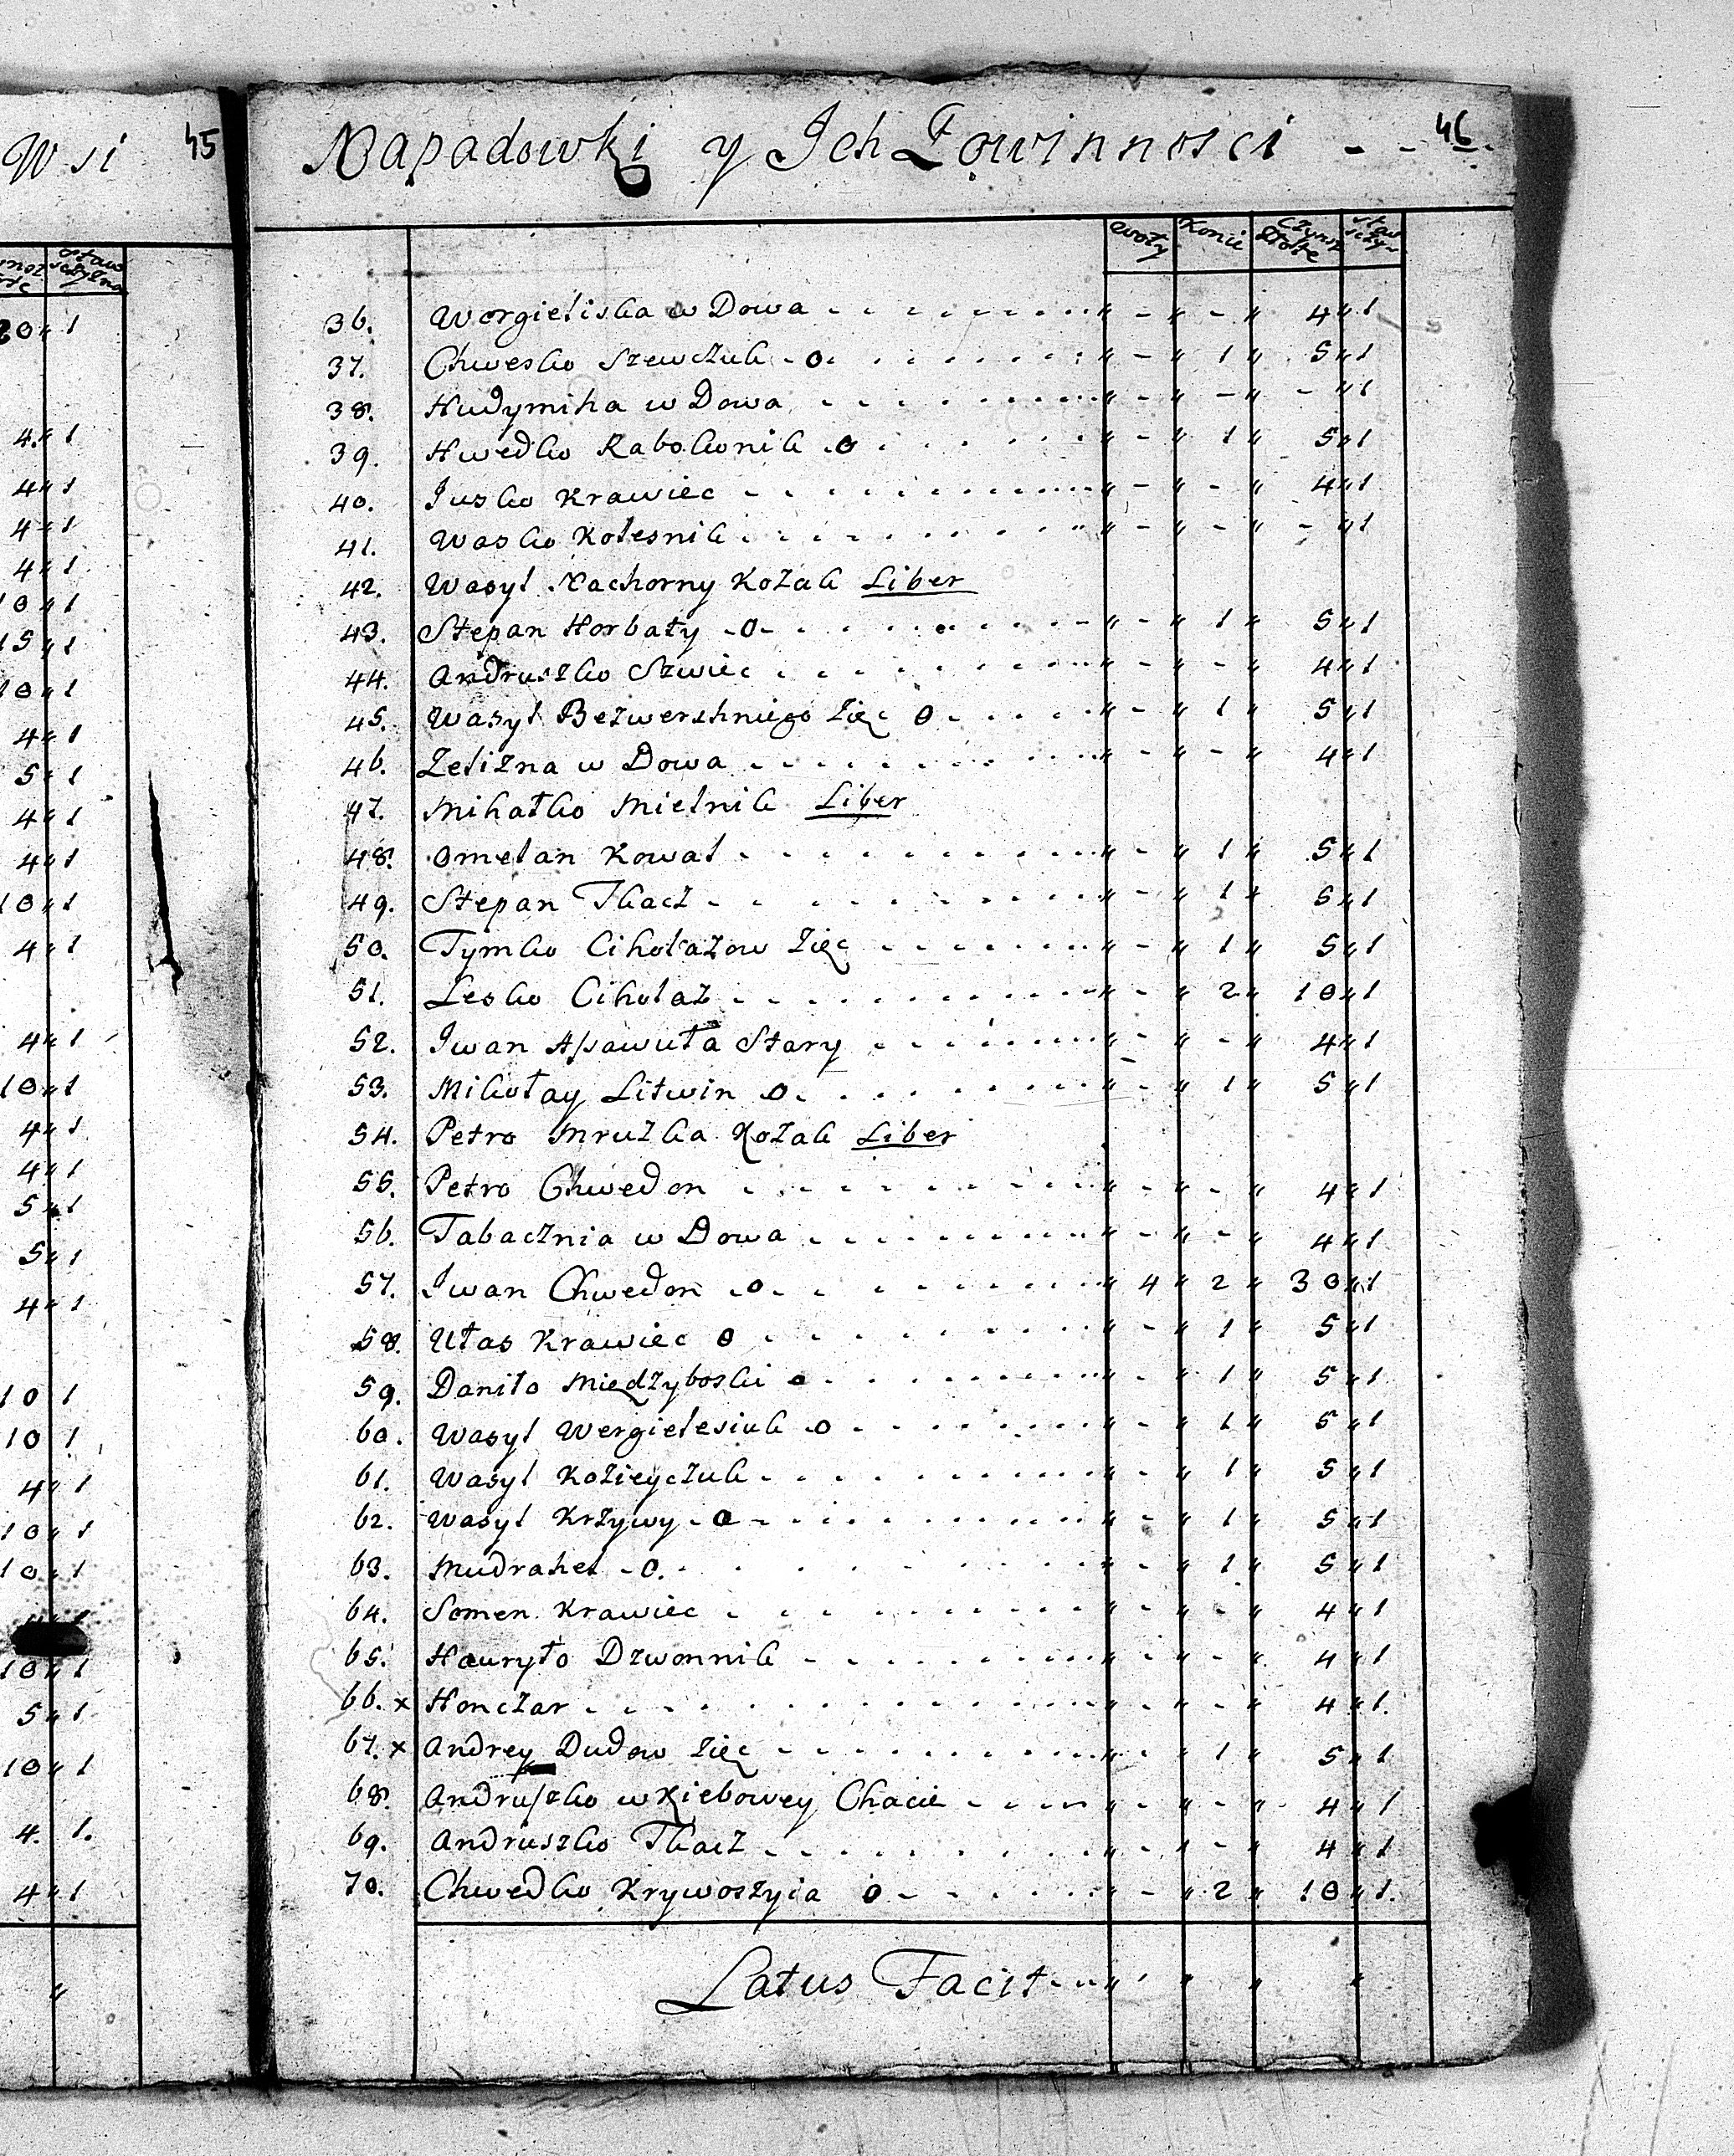 Wsi 45
Napadowki y Ich Powinnosci - - 46.
Woły Konie Czynsz Złote Staw sczy-
36. Worgieliska w Dowa " - " - " 4 " 1
37. Chwesko Szewczuk - o " - " 1 " 5 " 1
38. Hudymiha w Dowa " - " - " - " 1
39. Hwedko Rabokonik o " - " 1 " 5 " 1
40. Jusko Krawiec " - " - " 4 " 1
41. Wasko Kolesnik " - " - " - " 1
42. Wasyl Nachorny Kozak Liber
43. Stepan Horbaty - o - " - " 1 " 5 " 1
44. Andruszko Szwiec " - " - " 4 " 1
45. Wasyl Bezwershniego Zięc o " - " 1 " 5 " 1
46. Zelizna w Dowa " - " - " 4 " 1
47. Mihałko Mielnik Liber
48. Omelan Kowal " - " 1 " 5 " 1
49. Stepan Tkacz " - " 1 " 5 " 1
50. Tymko Ciholazow Zięc " - " 1 " 5 " 1
51. Lesko Ciholaz " - " 2 " 10 " 1
52. Iwan Apawuła Stary " - " - " 4 " 1
53. Mikołay Litwin o " - " 1 " 5 " 1
54. Petro Mruzka Kozak Liber
55. Petro Chwedon " - " - " 4 " 1
56. Tabacznia w Dowa " - " - " 4 " 1
57. Iwan Chwedon - o " 4 " 2 " 30 " 1
58. Ułas Krawiec o " - " 1 " 5 " 1
59. Daniło Międzyboski o " - " 1 " 5 " 1
60. Wasyl Wergielesiuk o " - " 1 " 5 " 1
61. Wasyl Kozieyczuk " - " 1 " 5 " 1
62. Wasyl Krzywy - o " - " 1 " 5 " 1
63. Mudrahel - o " - " 1 " 5 " 1
64. Somen Krawiec " - " - " 4 " 1
65. Hauryło Dzwonnik " - " - " 4 " 1
66. x Honczar " - " - " 4 " 1
67. x Andrey Dudow Zięc " - " 1 " 5 " 1
68. Andruszko w Kiebowey Chacie " - " - " 4 " 1
69. Andruszko Tkacz " - " - " 4 " 1
70. Chwedko Krywoszyia o " - " 2 " 10 " 1
Latus Facit " " " "